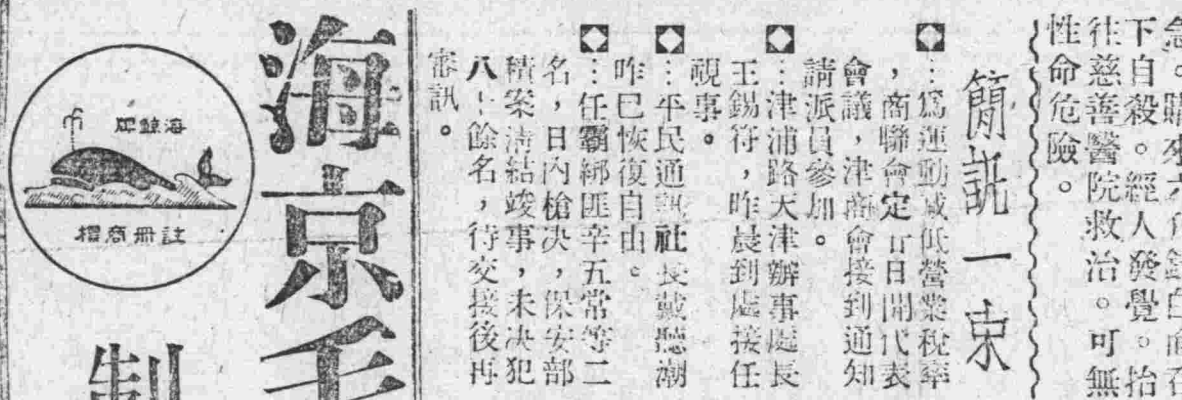 下自殺。經人發覺。抬
往慈善醫院救治。可無
性命危險。
簡訊一束
…爲運動減低營業稅率
，商聯會定廿日開代表
會議，津商會接到通知
請派員參加。
…津浦路天津辦事處長
王錫符，昨晨到處接任
視事。
…平民通訊社長戴聽潮
昨已恢復自由。
…任霸綁匪辛五常等二
名，日內槍決，保安部
積案清結竣事，未決犯
八十餘名，待交接後再
審訊。
海京毛
海鯨牌
註冊商標
制